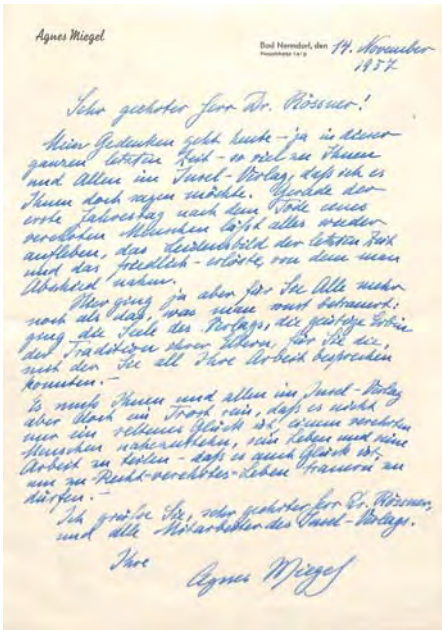 Agnes Miegel
Bad Nenndorf, den 14. November
1957
Sehr geehrter Herr Dr. Rössner!
Mein Gedenken geht heute – ja in dieser
ganzen letzten Zeit – so viel zu Ihnen
und Allen im Insel-Verlag, daß ich es
Ihnen doch sagen möchte. Gerade der
erste Jahrestag nach dem Tode eines
verehrten Menschen läßt alles wieder
aufleben, das Leidensbild der letzten Zeit
und das friedlich-erlöste, von dem man
Abschied nahm.
Hier ging ja aber für Sie Alle mehr
noch als das, was man sonst betrauert:
ging die Seele des Verlags, die geistige Erbin
der Tradition ihrer Eltern, für Sie die,
mit der Sie all Ihre Arbeit besprechen
konnten. –
Es muß Ihnen und allen im Insel-Verlag
aber doch ein Trost sein, daß es nicht
nur ein seltenes Glück ist, einem verehrten
Menschen nahezustehen, sein Leben und seine
Arbeit zu teilen – daß es auch Glück ist,
um zu-Recht-verehrtes-Leben trauern zu
dürfen. –
Ich grüße Sie, sehr geehrter Herr Dr. Rössner,
und alle Mitarbeiter des Insel-Verlags.
Ihre
Agnes Miegel